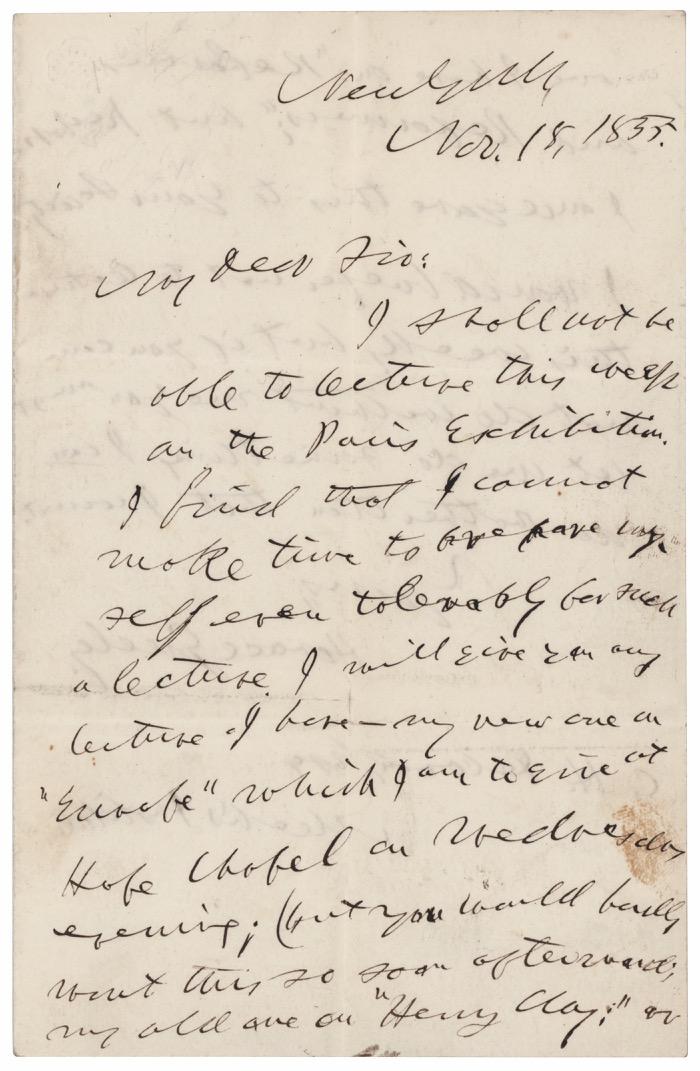 New York,
Nov. 18, 1855.
My dear Sir:
I shall not be
able to lecture this week
on the Paris Exhibition.
I find that I cannot
make time to prepare my-
self even tolerably for such
a lecture. I will give you any
lecture I have — my new one on
"Europe" which I am to give at
Hope Chapel on Wednesday
evening; (but you would hardly
want this so soon afterward;
my old one on "Henry Clay;" or